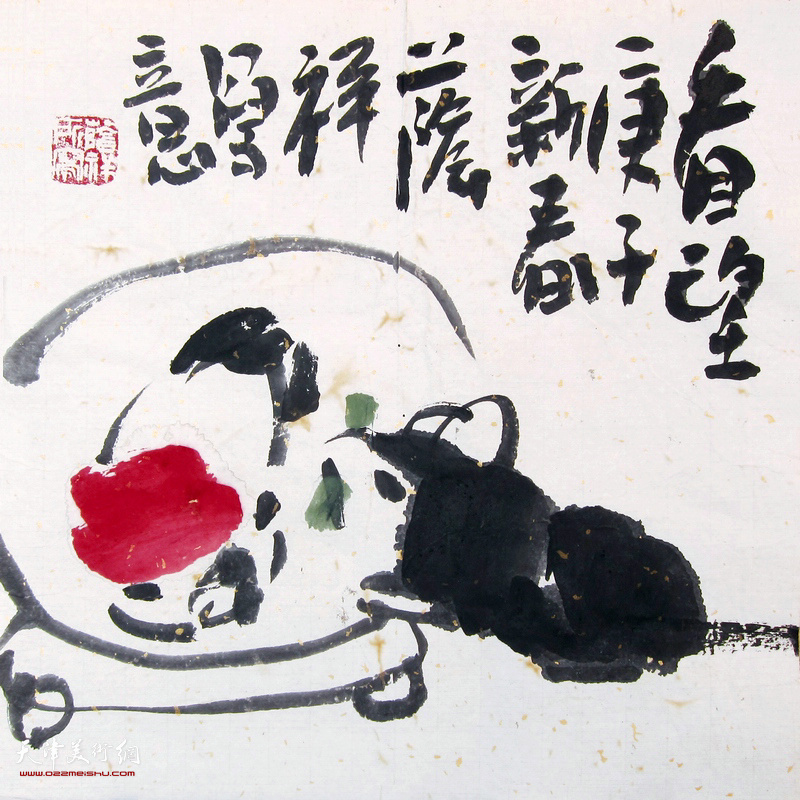 看望
庚子
新春
蔭
祥
寫
意
天津美术网
www.022meishu.com